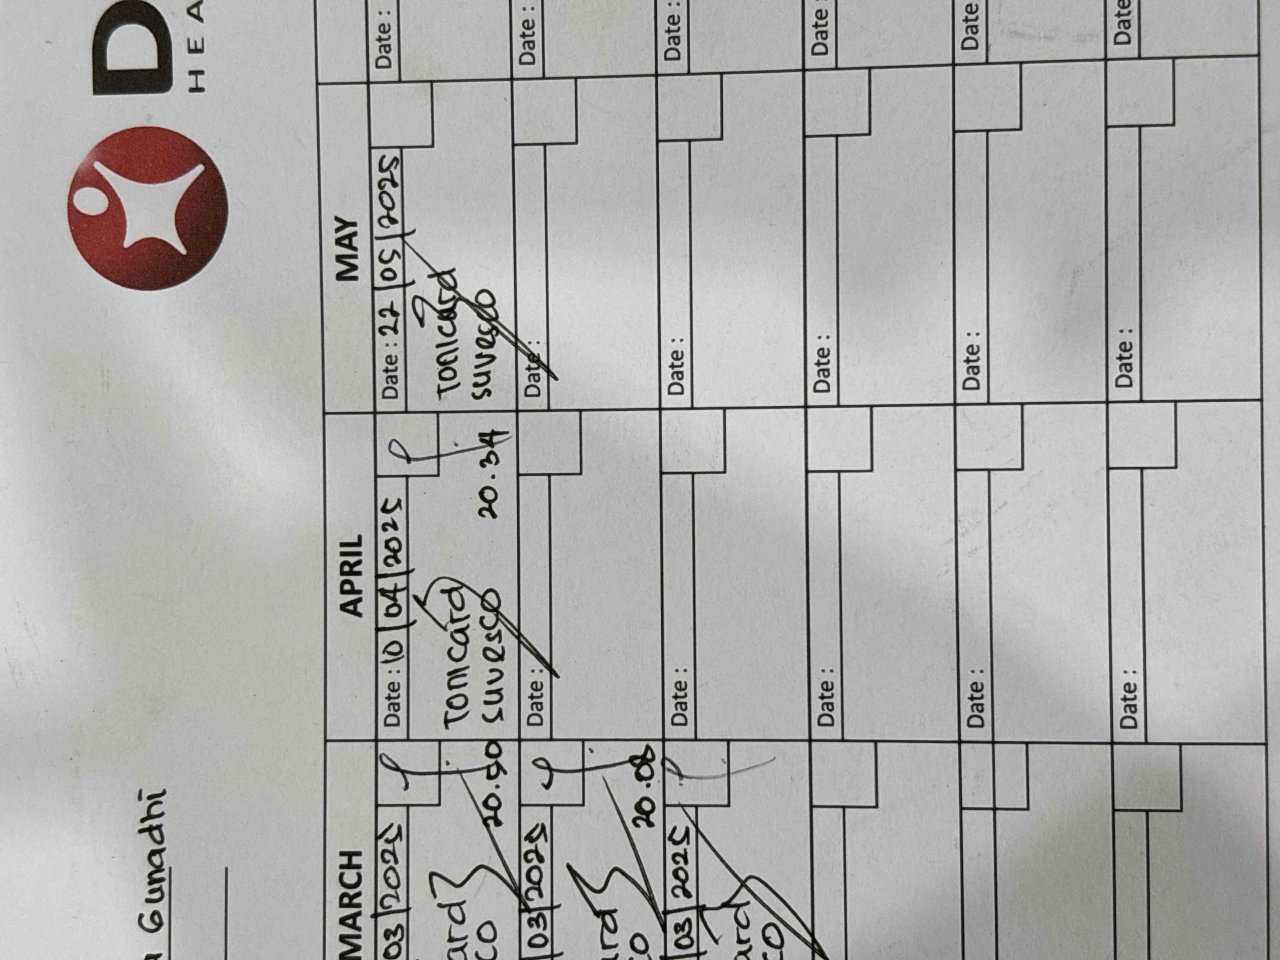 D
HEA
Gunadhi
MARCH
APRIL
MAY
03 | 2025
Date : 10 | 04 | 2025
Date : 22 | 05 | 2025
Date :
ard
Tonicard
Tonicard
co
20.50
suvesco
20.34
suvesco
03 | 2025
Date :
Date :
Date :
ard
co
20.08
03 | 2025
Date :
Date :
Date :
ard
co
Date :
Date :
Date :
Date :
Date :
Date :
Date :
Date :
Date :